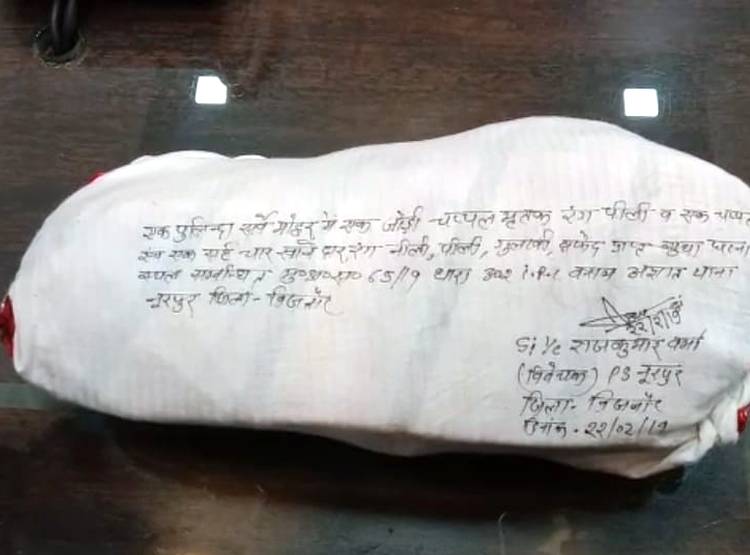 एक पुलिन्दा सर्वे मोहर में एक जोड़ी चप्पल मृतक रंग पीली व एक चप्पल
एक चार खाने दार रंग नीली, पीली, गुलाबी, सफेद घटना
स्थल सम्बन्धित मु०अ०सं० 65/19 धारा 302 I.P.C बनाम अज्ञात थाना
नूरपुर जिला - बिजनौर
SI I/C राजकुमार वर्मा
(विवेचक) PS नूरपुर
जिला - बिजनौर
दिनांक - 22/02/19